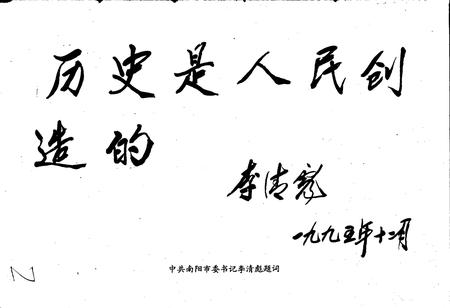 历史是人民创
造的
李清彪
一九九五年十二月
中共南阳市委书记李清彪题词